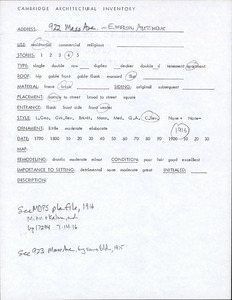 CAMBRIDGE ARCHITECTURAL INVENTORY
ADDRESS: 922 Mass Ave. — EMERSON APARTMENT
USE: residential commercial religious
STORIES: 1 2 3 4 5
TYPE: single double row duplex decker double d tenement apartment
ROOF: hip gable front gable flank mansard flat
MATERIAL: frame brick SIDING: original subsequent
PLACEMENT: narrow to street broad to street square
ENTRANCE: flank front side front center
ORNAMENT: little moderate elaborate 1916
DATE: 1790 1800 10 20 30 40 50 60 70 80 90 1900 10 20 30
MAP:
REMODELING: drastic moderate minor CONDITION: poor fair good excellent
IMPORTANCE TO SETTING: detrimental some moderate great INITIALED:
DESCRIPTION:
See MDPS plan file, 1916
See 923 Mass Ave, by same bldr, 1915